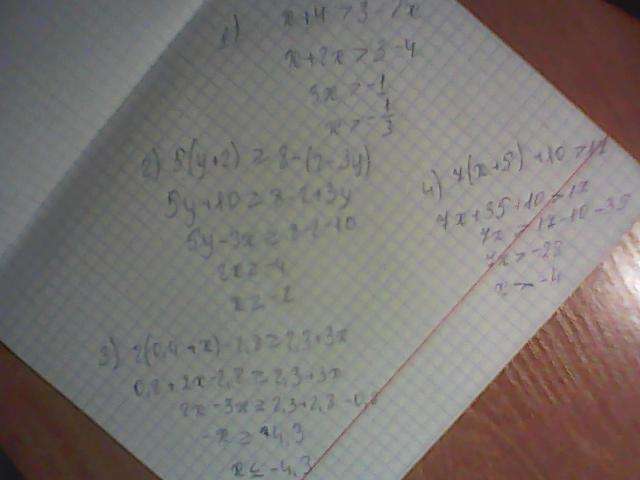 1) x+4>3-2x
x+2x>3-4
3x>-1
x>-1/3
2) 5(y+2)≥8-(2-3y)
5y+10≥8-2+3y
5y-3x≥8-2-10
2x≥-4
x≥-2
3) 2(0,4+x)-2,8≥2,3+3x
0,8+2x-2,8≥2,3+3x
2x-3x≥2,3+2,8-0,8
-x≥4,3
x≤-4,3
4) 7(x+5)+10>17
7x+35+10>17
7x>17-10-35
7x>-28
x>-4